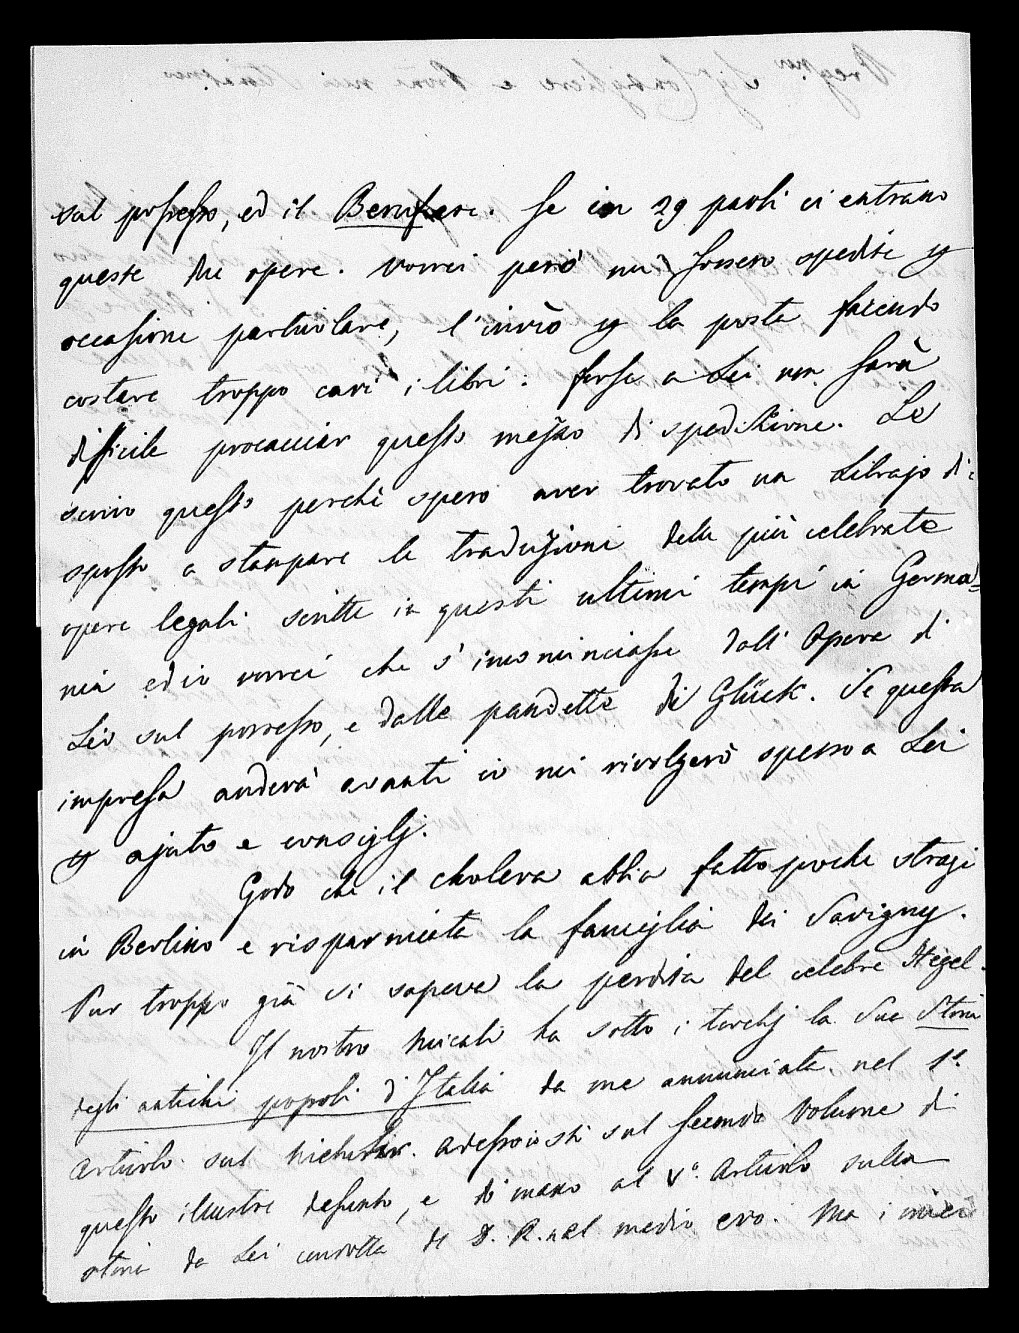 sul possesso, ed il Se in 29 paoli ci entrano
queste due opere. Vorrei però mi fossero spedite p
occasione particolare, l'invio p la posta facendo
costare troppo cari i libri. Forse a Lei non sarà
difficile procacciar questo mezzo di spedizione. Le
scrivo questo perchè spero aver trovato un Librajo di-
sposto a stampare le traduzioni delle più celebrate
opere legali scritte in questi ultimi tempi in Germa=
nia ed io vorrei che s'incominciasse dall'Opera di
Lei sul possesso, e dalle pandette di Glück. Se questa
impresa anderà avanti io mi rivolgerò spesso a Lei
p ajuto e consiglj.
Godo che il cholera abbia fatto poche stragi
in Berlino e risparmiata la famiglia dei Savigny.
Pur troppo già si sapeva la perdita del celebre Hegel.
Il nostro Micali ha sotto i torchj la sua Storia
degli antichi popoli d'Italia da me annunciata nel 1°.
Articolo sul Niebuhr. Adesso sul secondo Volume di
questo illustre defunto, e al V° Articolo sulla
storia da Lei condotta del D. R. nel medio evo. Ma i miei